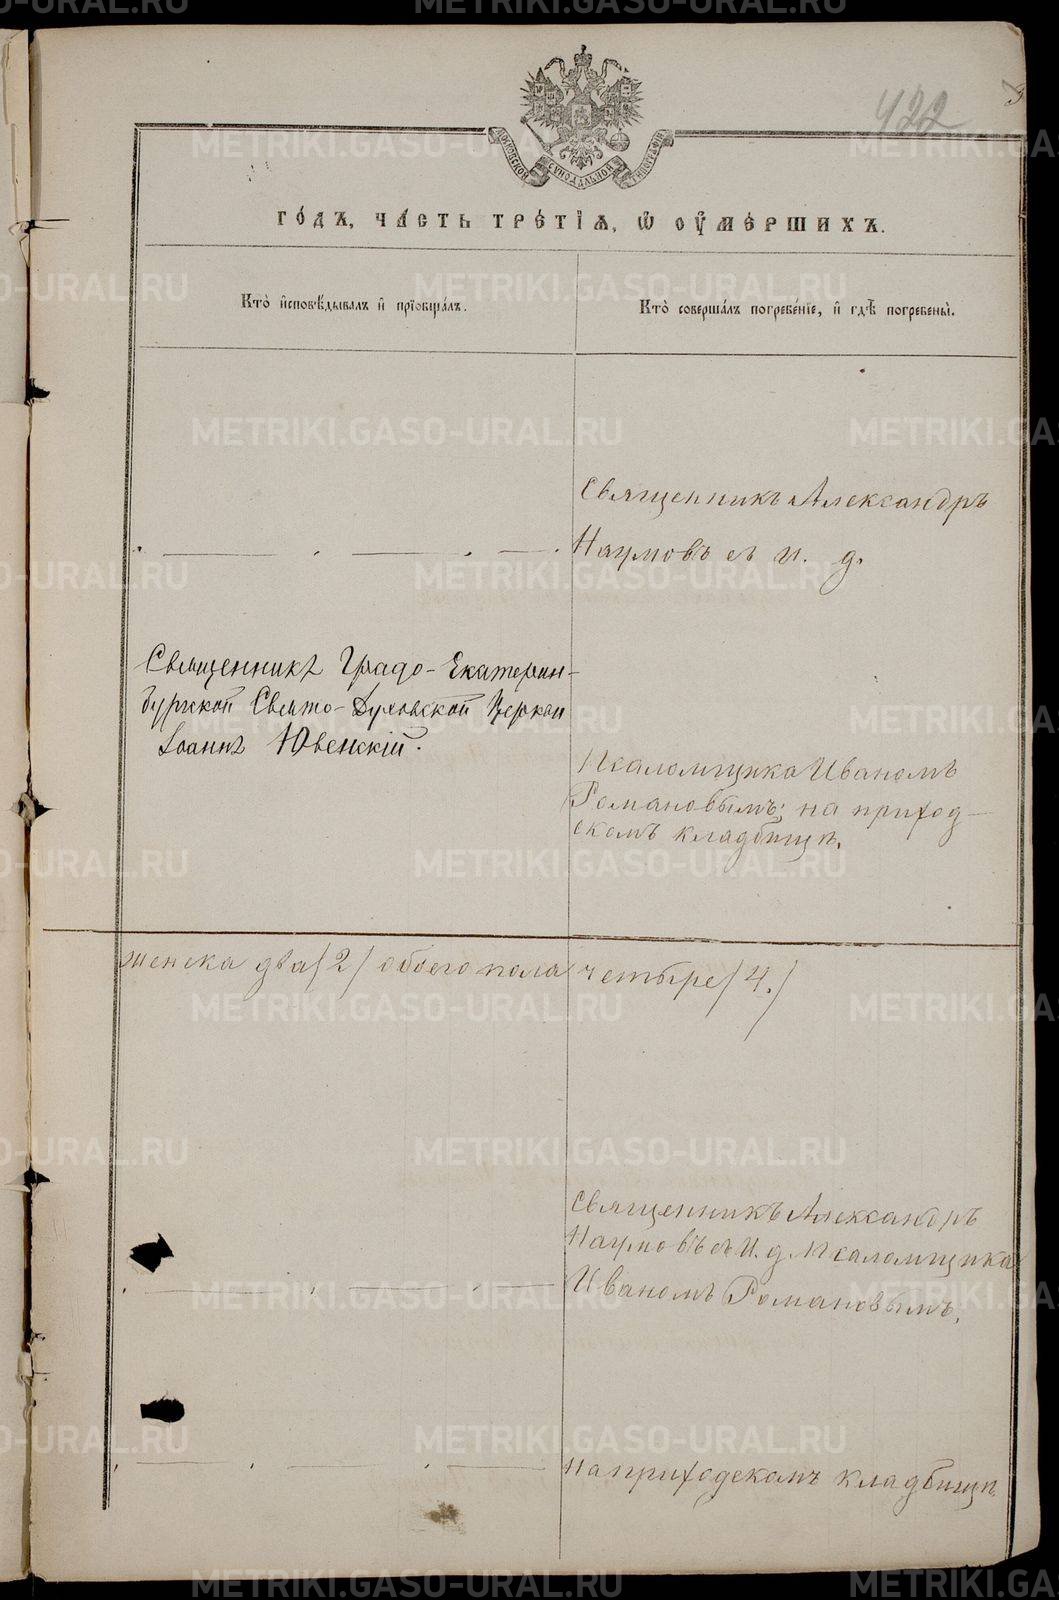 422
МОСКОВСКОЙ СѴНОДАЛЬНОЙ ТИПОГРАФІИ
го́дъ, ча́сть тре́тїѧ, ѡ҆ оу҆ме́ршихъ.
Кто̀ и҆сповѣ́дывалъ и҆ прїѡбща́лъ.
Кто̀ соверша́лъ погребе́нїе, и҆ гдѣ̀ погребены̀.
Священникъ Александръ
Наумовъ съ и. д.
Священникъ Градо-Екатерин-
бургской Свято-Духовской Церкви
Іоаннъ Ювенскій.
Псаломщика Иваномъ
Романовымъ; на приход-
скомъ кладбищѣ.
женска два (2) обоего пола четыре (4.)
Священникъ Александръ
Наумовъ съ И. д. Псаломщика
Иваномъ Романовымъ,
на приходскомъ кладбищѣ
METRIKI.GASO-URAL.RU